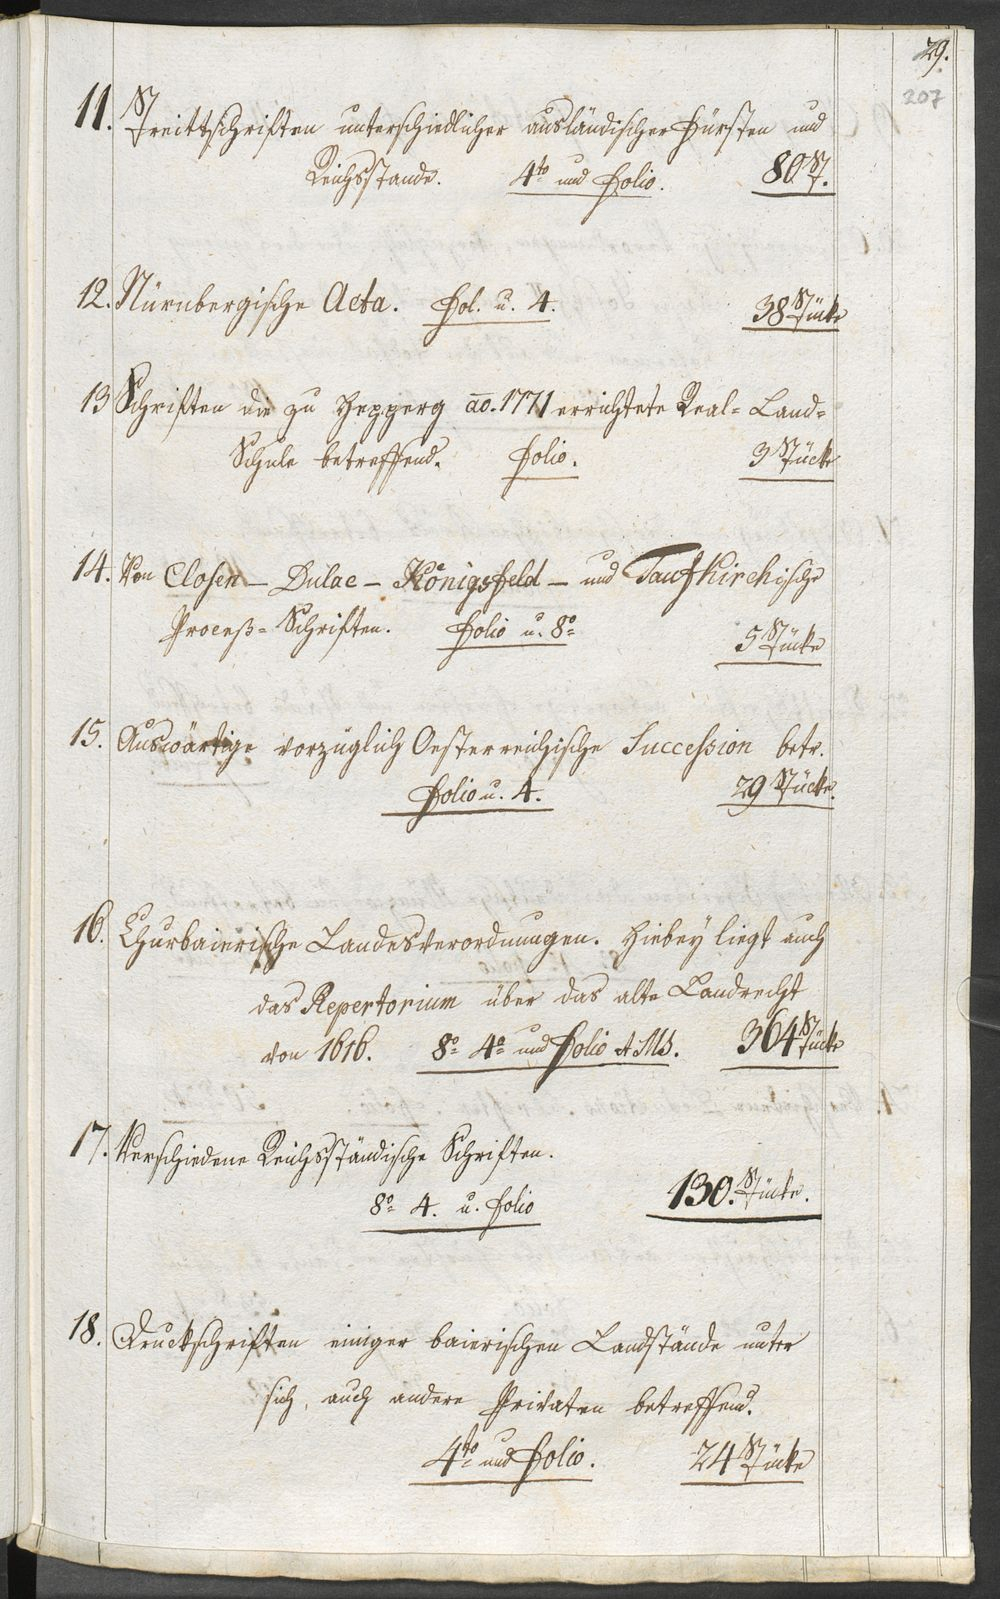 29.
207
11. Streittschriften unterschiedlicher ausländischer Fürsten und
Reichsstande. 4to und Folio. 80 St.
12. Nürnbergische Acta. Fol. u. 4. 38 Stücke
13 Schriften die zu Hepperg ao. 1771 errichtete Real- Land-
Schule betreffend. Folio. 3 Stücke
14. Von Closen- Dulac- Königsfeld- und Taufkirchische
Proceß- Schriften. Folio u. 8o 5 Stücke
15. Auswärtige vorzüglich Oesterreichische Succession betr.
Folio u. 4. 29 Stücke.
16. Churbaierische Landesverordnungen. Hiebey liegt auch
das Repertorium über das alte Landrecht
von 1616. 8o 4o und Folio et MS. 364 Stücke
17. Verschiedene Reichsständische Schriften.
8o 4. u. Folio 130. Stücke.
18. Druckschriften einiger baierischen Landstände unter
sich, auch andere Privaten betreffend.
4to und Folio. 24 Stücke